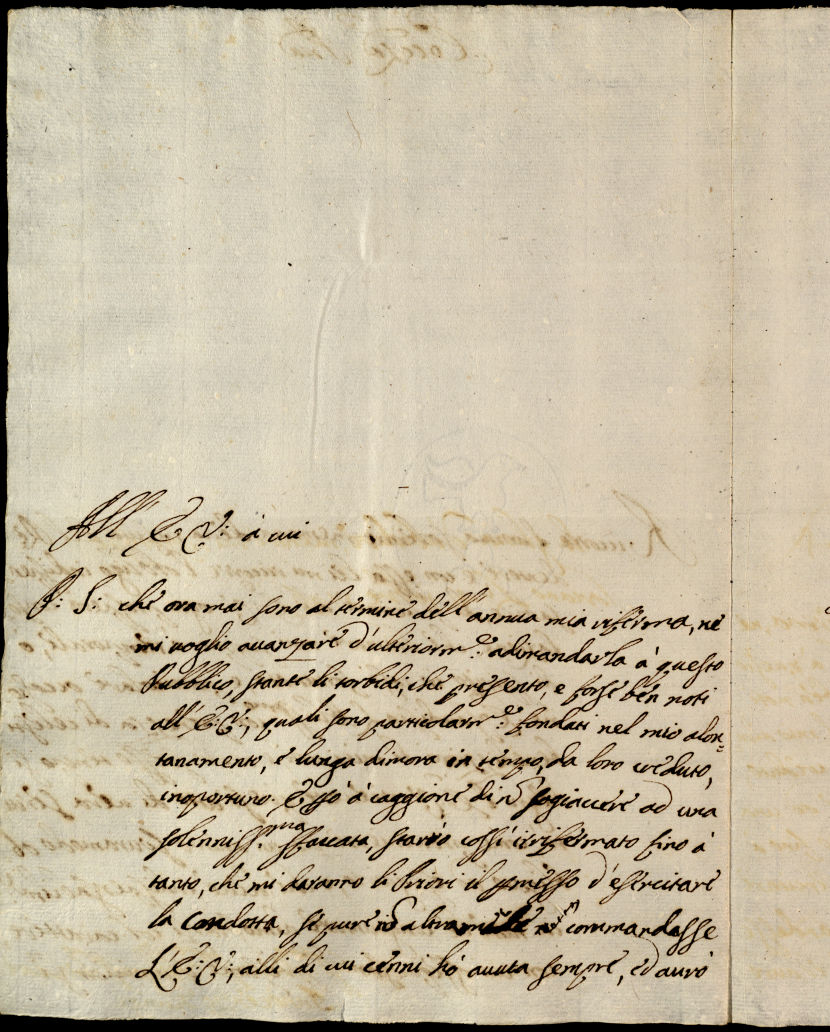 All' E: V: à cui
P: S: che ora mai sono al termine dell'annua mia rifferma, ne
mi voglio avanzare d'ulteriorm:e adimandarla à questo
Pubblico, stante li torbidi, che presento, e forse ben noti
all'E: V:, quali sono particolarm:e fondati nel mio alon=
tanamento, e lunga dimora in tempo, da loro creduto,
inoportuno. E ciò à caggione di sogiacere ad una
solenniss:ma staccata, starò cossì irrifermato fino à
tanto, che mi daranno li Priori il permesso d'esercitare
la condotta, se pure altramente commandasse
L'E: V:, alli di cui cenni hò avuta sempre, ed avrò